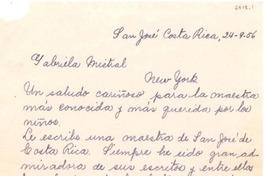 San José Costa Rica, 24-9-56
Gabriela Mistral
New York
Un saludo cariñoso para la maestra
más conocida y más querida por los
niños.
Le escribe una maestra de San José de
Costa Rica. Siempre he sido gran ad-
miradora de sus escritos y entre ellos